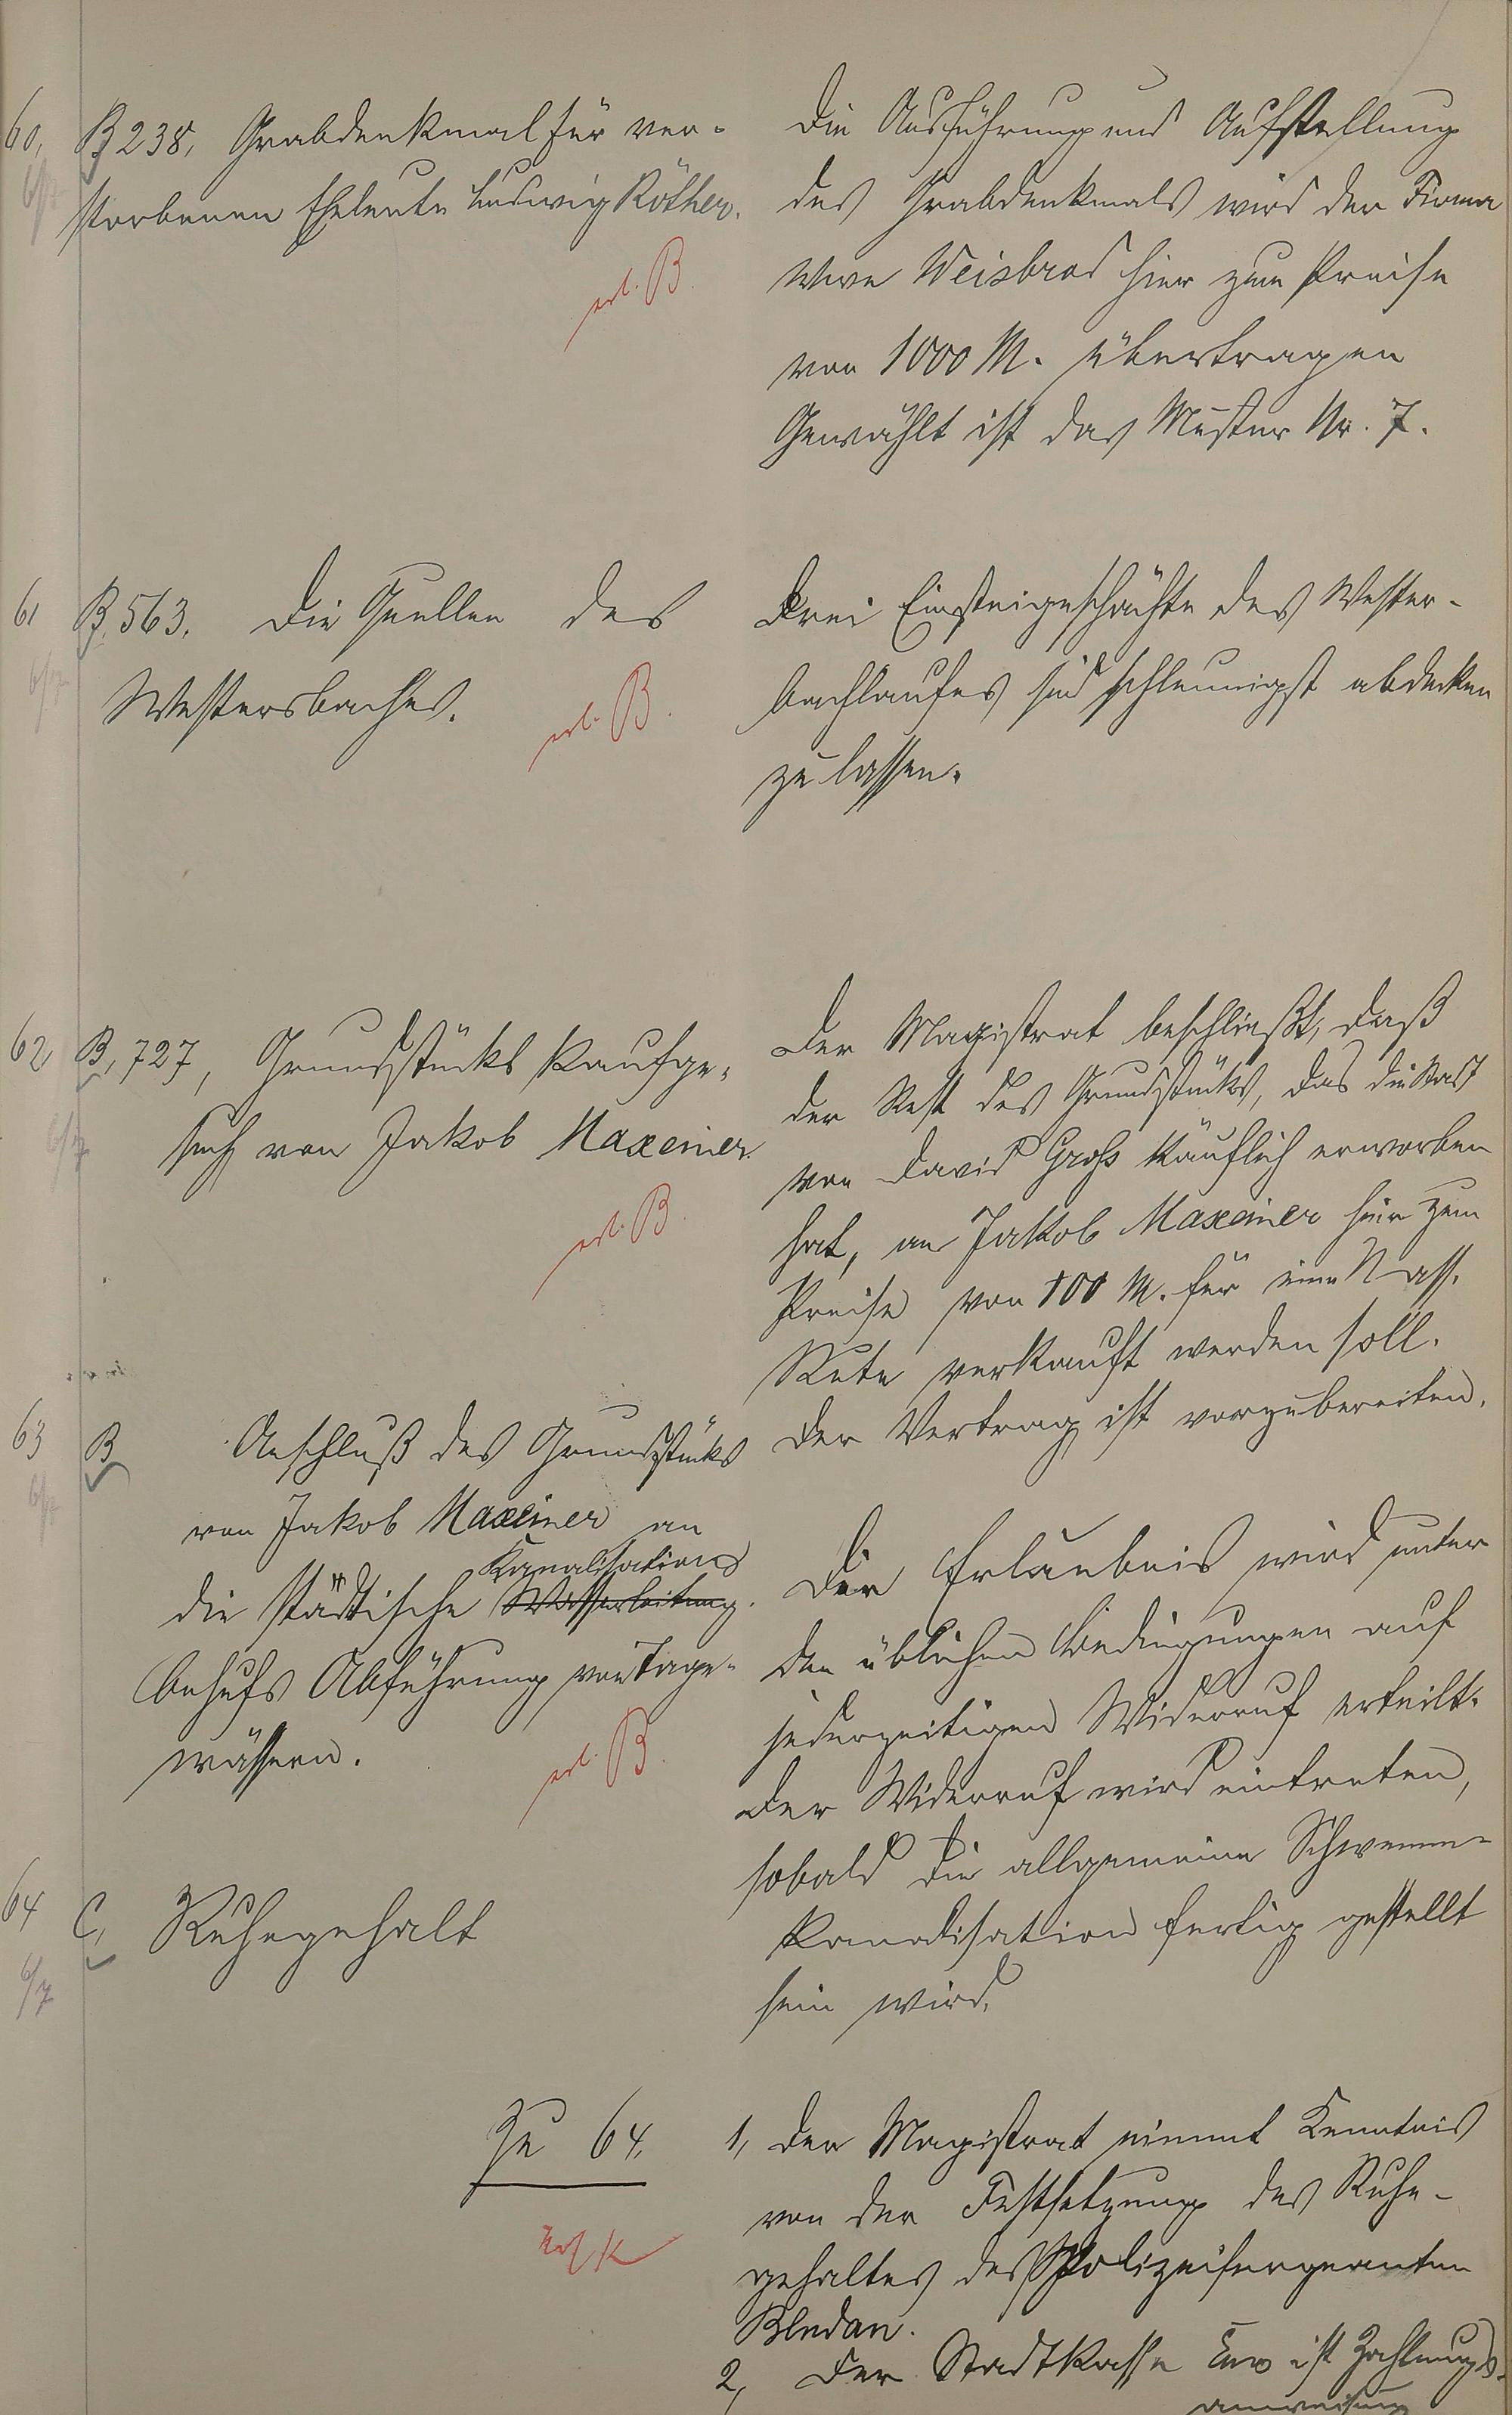 60, B 238, Grabdenkmal für ver-
storbenen Eheleute Ludwig Röther.
erl. B.
Die Ausführung und Aufstellung
des Grabdenkmals wird der Firma
Wwe Weisbrod hier zum Preise
von 1000 M. übertragen
Gewählt ist das Muster Nr. 7.
61 B. 563. Die Quellen des
Westersbaches.
erl. B.
Drei Einsteigeschächte des Wester-
bachlaufes sind schleunigst abdecken
zu lassen.
62 B, 727, Grundstücks Kaufge-
such von Jakob Maxeiner.
erl. B.
Der Magistrat beschließt, daß
der Rest des Grundstücks, das die Stadt
von David Groß käuflich erworben
hat, an Jakob Maxeiner hier zum
Preise von 100 M. für eine Nass.
Rute verkauft werden soll.
Der Vertrag ist vorzubereiten.
63 B Anschluß des Grundstücks
von Jakob Maxeiner an
Kanalisation
die städtische Wasserleitung.
behufs Abführung von Tage-
wässern.
erl. B.
Die Erlaubnis wird unter
den üblichen Bedingungen auf
jederzeitigen Widerruf erteilt.
Der Widerruf wird eintreten,
sobald die allgemeine Schwemm-
kanalisation fertig gestellt
sein wird.
64 C, Ruhegehalt
6/7
Zu 64.
1, Der Magistrat nimmt Kenntnis
von der Festsetzung des Ruhe-
gehaltes des Polizeisergeanten
Bledan.
2, Der Stadtkasse ist Zahlungs-
anweisung